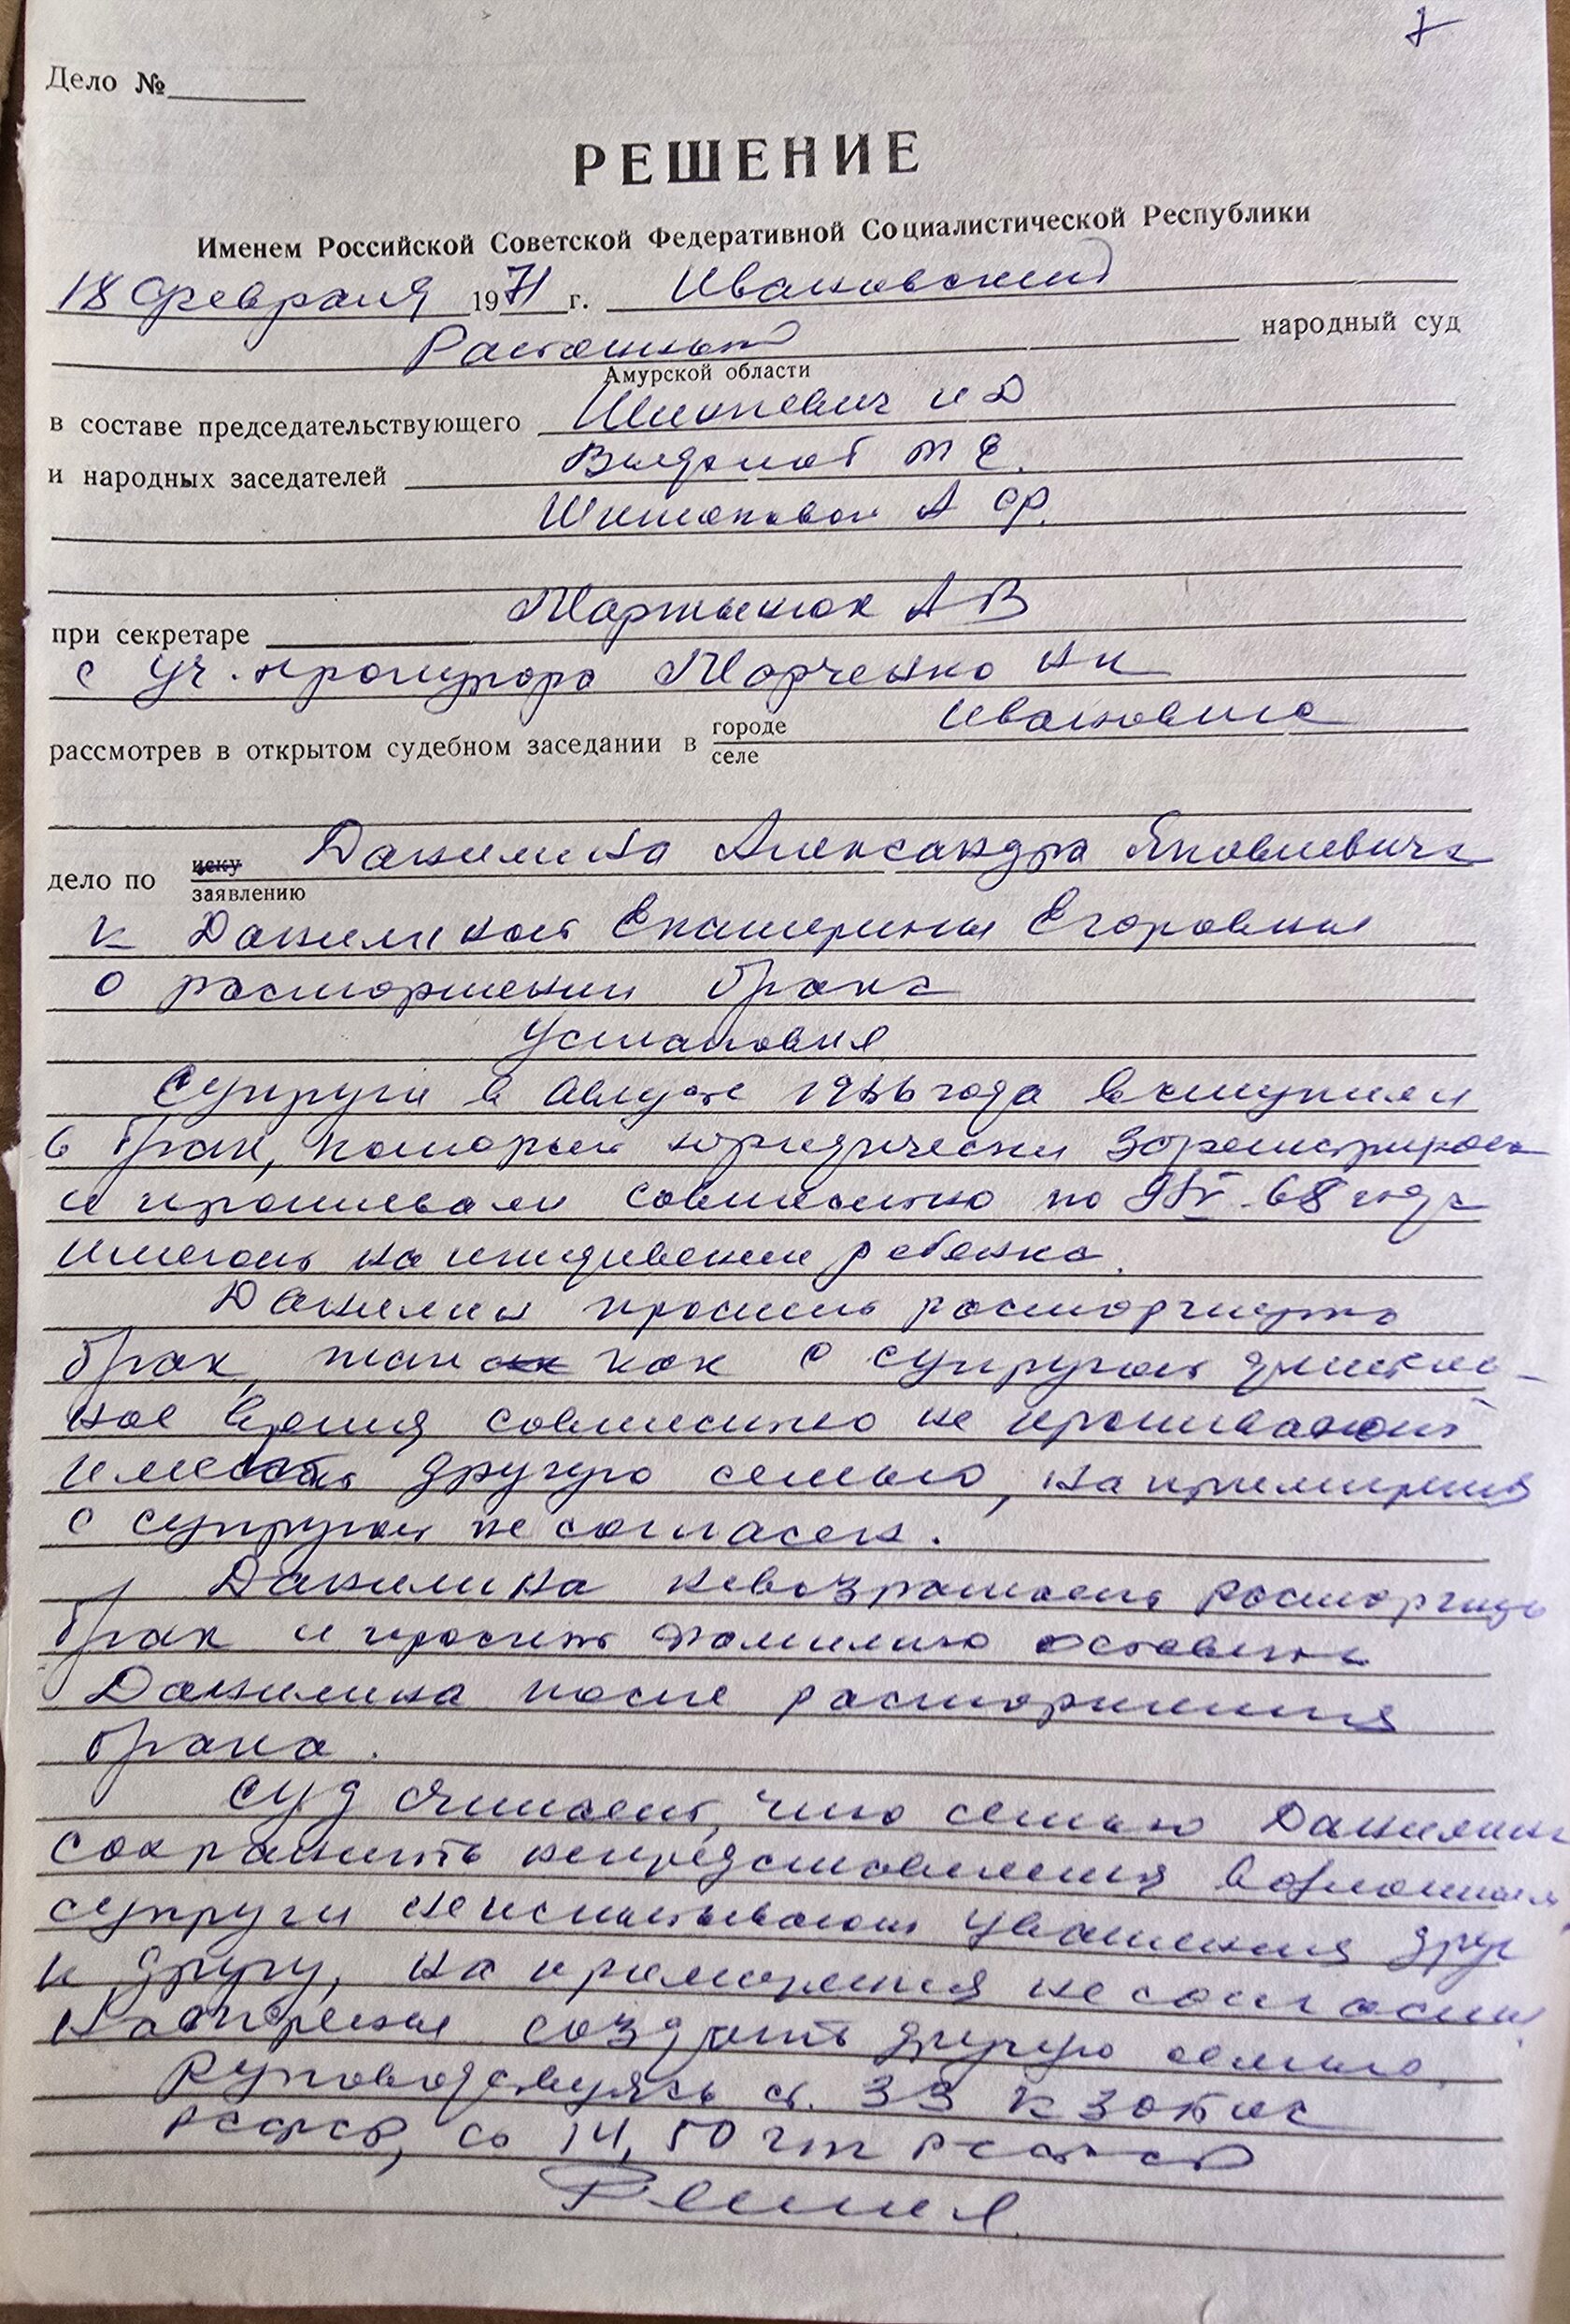 7
Дело №
РЕШЕНИЕ
Именем Российской Советской Федеративной Социалистической Республики
18 февраля 1971 г. Ивановский
народный суд
Амурской области
в составе председательствующего Шинкевич И Д
и народных заседателей Т Е.
А Ф.
при секретаре Мартынюк А В
с уч. прокурора Марченко Н К
рассмотрев в открытом судебном заседании в городе селе Ивановка
дело по иску заявлению Данилина Александра Яковлевича
к Данилиной Екатерины Егоровны
о расторжении брака
Установил
Супруги в августе 1956 года вступили
в брак, который юридически
и проживали совместно по 68 года
имеют на иждивении ребенка.
Данилин просит расторгнуть
брак, так как с супругой длитель-
ное время совместно не проживают
имеет другую семью, на примирения
с супругой не согласен.
Данилина невозражает расторгнуть
брак и просит фамилию оставить
Данилина после расторжения
брака.
Суд считает, что семью Данилиных
сохранить непредставляется
супруги неиспытывают уважения друг
к другу, на примирения не согласны,
намерены создать другую семью.
Руководствуясь ст. 33 К ЗоБиС
РСФСР, ст 14, 50 ГПК РСФСР
Решил